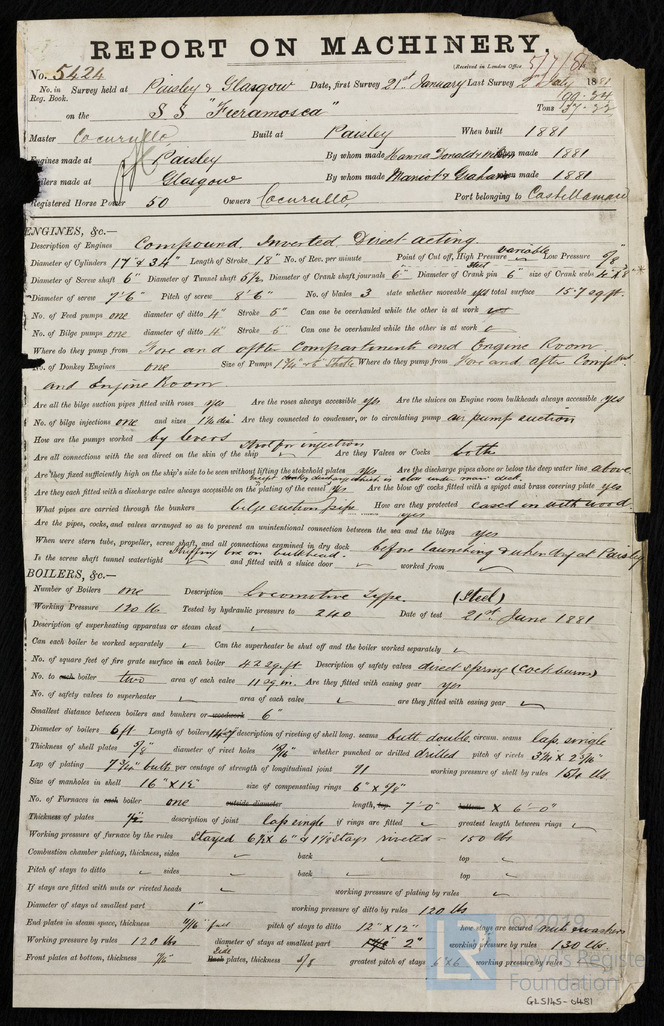 REPORT ON MACHINERY.
No. 5424
(Received in London Office 5/7/81
No. in Reg. Book. Survey held at Paisley & Glasgow Date, first Survey 21st January Last Survey 2d July 1881
on the S S "Fieramosca" Tons
Master Cocurullo Built at Paisley When built 1881
Engines made at Paisley By whom made Hanna Donald & Wilson when made 1881
Boilers made at Glasgow By whom made Marriott & Graham when made 1881
Registered Horse Power 50 Owners Cocurullo Port belonging to Castellamare
ENGINES, &c.—
Description of Engines Compound Inverted Direct acting
Diameter of Cylinders 17" & 34" Length of Stroke 18" No. of Rev. per minute Point of Cut off, High Pressure variable Low Pressure
Diameter of Screw shaft 6" Diameter of Tunnel shaft 5½ Diameter of Crank shaft journals 6" Diameter of Crank pin 6" size of Crank webs 4" x 8"
Diameter of screw 7'.6" Pitch of screw 8'.6" No. of blades 3 state whether moveable yes total surface 15.7 sq ft.
No. of Feed pumps one diameter of ditto 4" Stroke 5" Can one be overhauled while the other is at work yes
No. of Bilge pumps one diameter of ditto 4" Stroke 5" Can one be overhauled while the other is at work ✓
Where do they pump from Fore and after Compartment and Engine Room
No. of Donkey Engines one Size of Pumps Where do they pump from Fore and after Compt
and Engine Room.
Are all the bilge suction pipes fitted with roses yes Are the roses always accessible yes Are the sluices on Engine room bulkheads always accessible yes
No. of bilge injections one and sizes Are they connected to condenser, or to circulating pump air pump suction
How are the pumps worked by levers
Are all connections with the sea direct on the skin of the ship Shot for injection Are they Valves or Cocks both
Are they fixed sufficiently high on the ship's side to be seen without lifting the stokehold plates yes Are the discharge pipes above or below the deep water line above
except donkey discharge which is also under main deck.
Are they each fitted with a discharge valve always accessible on the plating of the vessel yes Are the blow off cocks fitted with a spigot and brass covering plate yes
What pipes are carried through the bunkers bilge suction pipe How are they protected cased in with wood
Are the pipes, cocks, and valves arranged so as to prevent an unintentional connection between the sea and the bilges yes
When were stern tube, propeller, screw shaft, and all connections examined in dry dock before launching & when dry at Paisley
Is the screw shaft tunnel watertight Stuffing box on bulkhead. and fitted with a sluice door ✓ worked from ✓
BOILERS, &c.—
Number of Boilers one Description Locomotive Type. (Steel)
Working Pressure 120 lb Tested by hydraulic pressure to 240 Date of test 21st June 1881
Description of superheating apparatus or steam chest ✓
Can each boiler be worked separately ✓ Can the superheater be shut off and the boiler worked separately ✓
No. of square feet of fire grate surface in each boiler 42 sq. ft Description of safety valves direct spring (Cockburns)
No. to each boiler two area of each valve 11 sq in. Are they fitted with easing gear yes
No. of safety valves to superheater ✓ area of each valve ✓ are they fitted with easing gear ✓
Smallest distance between boilers and bunkers or woodwork 6"
Diameter of boilers 6 ft Length of boilers description of riveting of shell long. seams butt double circum. seams lap single
Thickness of shell plates 5/8 diameter of rivet holes 15/16" whether punched or drilled drilled pitch of rivets
Lap of plating 7¾" butt per centage of strength of longitudinal joint 71 working pressure of shell by rules 150 lbs.
Size of manholes in shell 16" x 12" size of compensating rings 6" x 7/8"
No. of Furnaces in each boiler one outside diameter length, top 7'-0" bottom x 6'-0"
Thickness of plates ½" description of joint lap single if rings are fitted ✓ greatest length between rings ✓
Working pressure of furnace by the rules Stayed Stays riveted = 150 lbs
Combustion chamber plating, thickness, sides ✓ back ✓ top ✓
Pitch of stays to ditto ✓ sides ✓ back ✓ top ✓
If stays are fitted with nuts or riveted heads ✓ working pressure of plating by rules ✓
Diameter of stays at smallest part 1" working pressure of ditto by rules 120 lbs
End plates in steam space, thickness 11/16" full pitch of stays to ditto 12" x 12" how stays are secured nuts washers
Working pressure by rules 120 lbs diameter of stays at smallest part 2" working pressure by rules 130 lbs.
Front plates at bottom, thickness Side Back plates, thickness 5/8 greatest pitch of stays 6"x6 working pressure by rules
© 2019
LR Lloyd's Register
Foundation
GLS145-0481